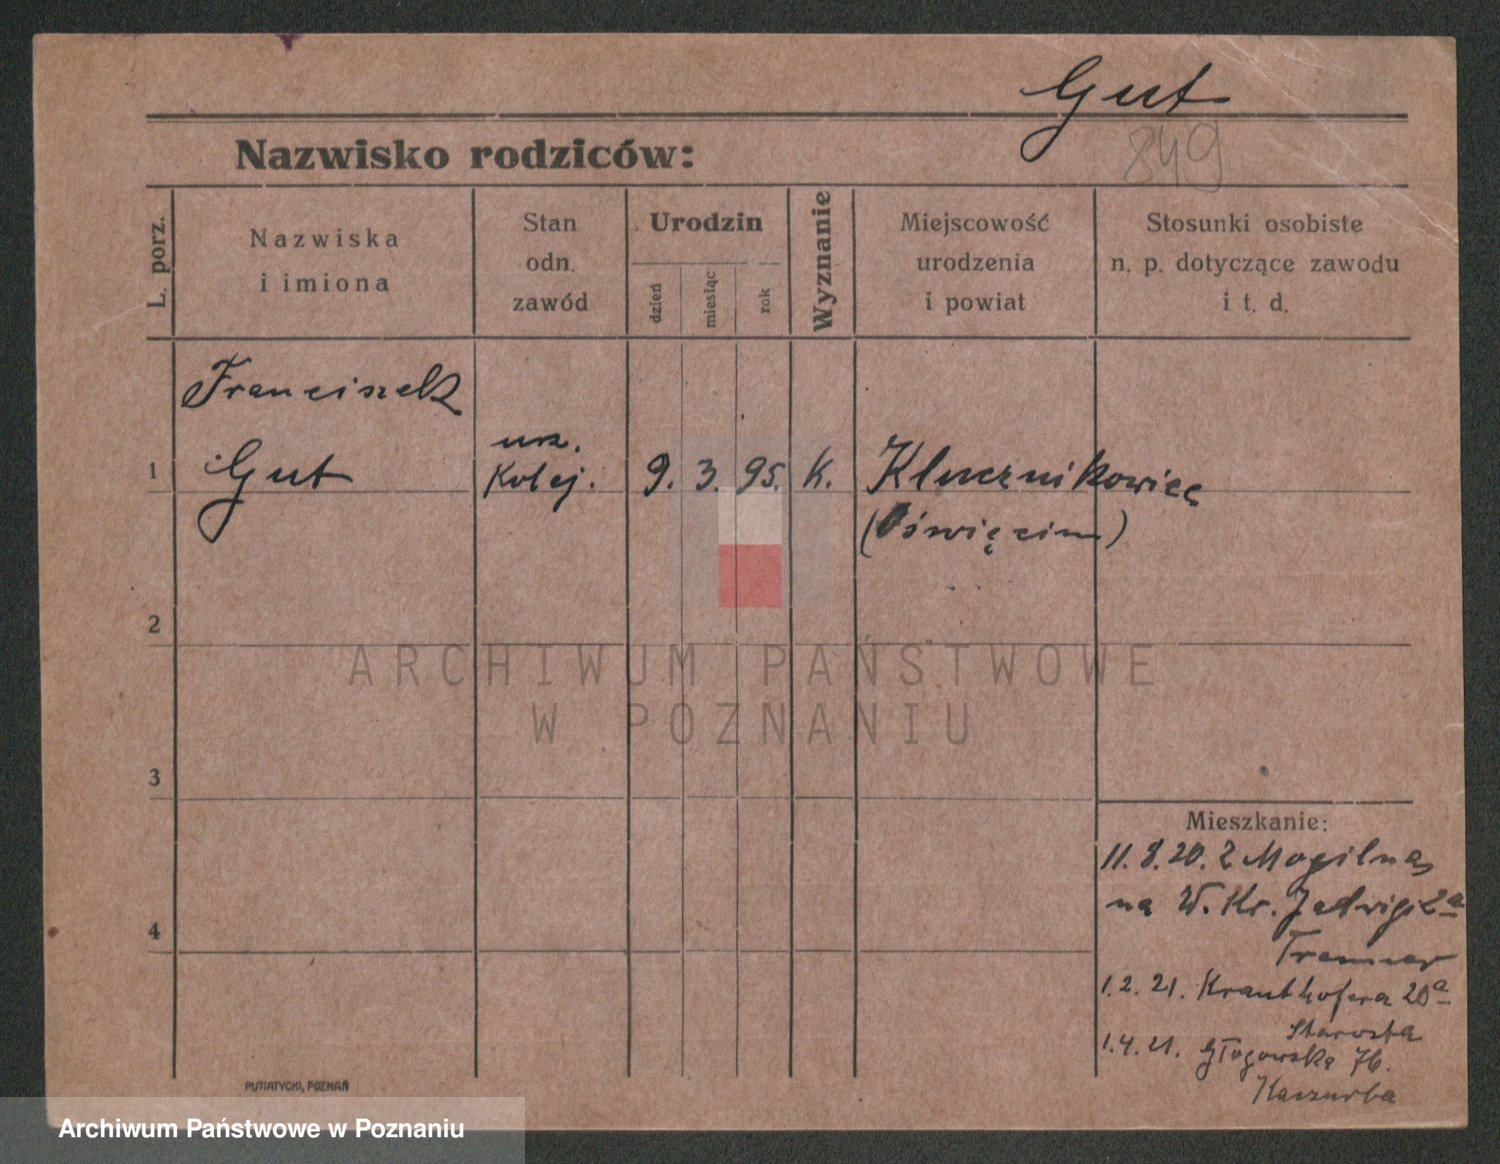 Gut
849
Nazwisko rodziców:
L. porz.
Nazwiska
i imiona
Stan
odn.
zawód
Urodzin
dzień
miesiąc
rok
Wyznanie
Miejscowość
urodzenia
i powiat
Stosunki osobiste
n. p. dotyczące zawodu
i t. d.
Franciszek
1 Gut urz. Kolej. 9. 3. 95. K. Klucznikowice
(Oświęcim)
2
ARCHIWUM PAŃSTWOWE
W POZNANIU
3
Mieszkanie:
11.8.20. z Mogilna
na W. Kr. Jadwigi 2a
4
1.2.21. Krauthofera 20a
Starosta
1.4.21. Głogowska 76.
Kaczurba
PUTIATYCKI, POZNAŃ
Archiwum Państwowe w Poznaniu